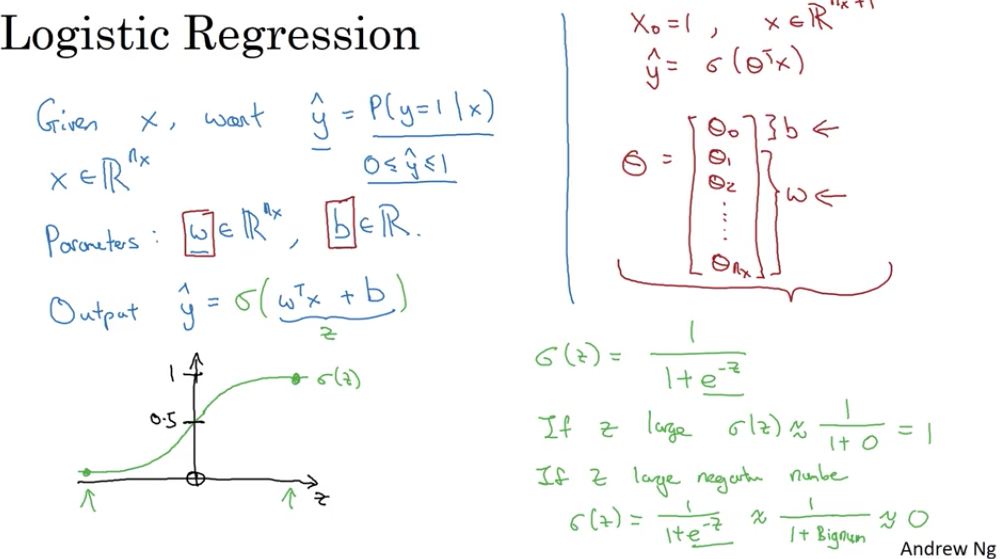 Logistic Regression
Given x, want ŷ = P(y=1|x)
0≤ŷ≤1
x ∈ ℝ^nx
Parameters: w ∈ ℝ^nx, b ∈ ℝ.
Output ŷ = σ(wᵀx + b)
z
1
σ(z)
0.5
z
x₀=1, x ∈ ℝ^nx+1
ŷ = σ(θᵀx)
θ = [θ₀ θ₁ θ₂ ⋮ θnx]
} b ←
} w ←
σ(z) = 1/(1+e^-z)
If z large σ(z) ≈ 1/(1+0) = 1
If z large negative number
σ(z) = 1/(1+e^-z) ≈ 1/(1+Bignum) ≈ 0
Andrew Ng